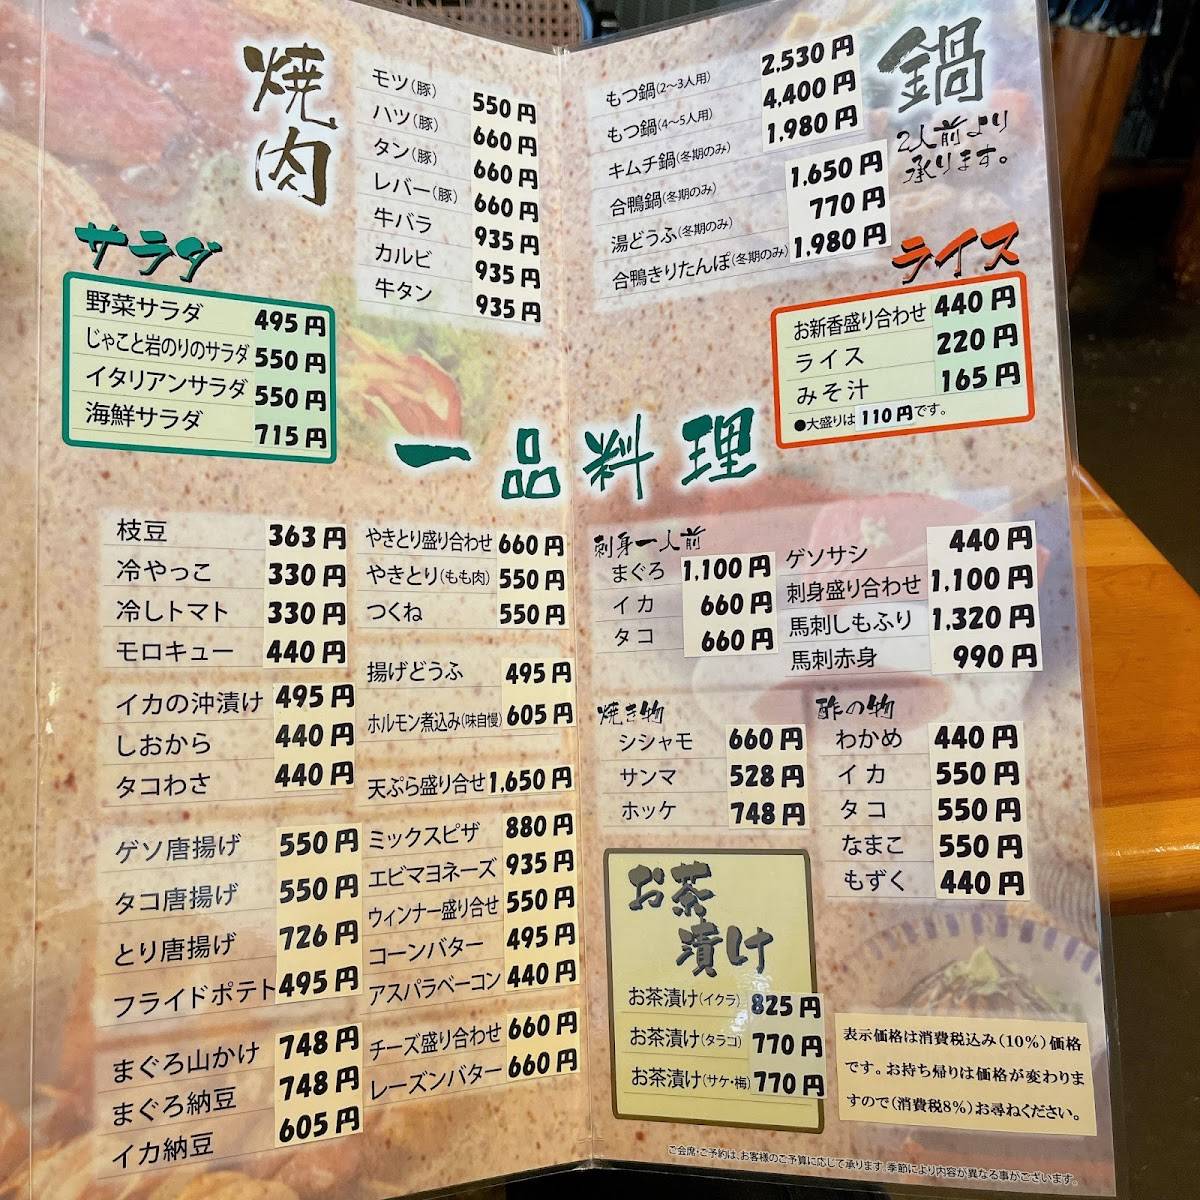 焼肉
モツ（豚） 550円
ハツ（豚） 660円
タン（豚） 660円
レバー（豚） 660円
牛バラ 935円
カルビ 935円
牛タン 935円
サラダ
野菜サラダ 495円
じゃこと岩のりのサラダ 550円
イタリアンサラダ 550円
海鮮サラダ 715円
鍋
2人前より
承ります。
もつ鍋（2〜3人用） 2.530円
もつ鍋（4〜5人用） 4.400円
キムチ鍋（冬期のみ） 1.980円
合鴨鍋（冬期のみ） 1.650円
湯どうふ（冬期のみ） 770円
合鴨きりたんぽ（冬期のみ） 1.980円
ライス
お新香盛り合わせ 440円
ライス 220円
みそ汁 165円
●大盛りは110円です。
一品料理
枝豆 363円
冷やっこ 330円
冷しトマト 330円
モロキュー 440円
イカの沖漬け 495円
しおから 440円
タコわさ 440円
ゲソ唐揚げ 550円
タコ唐揚げ 550円
とり唐揚げ 726円
フライドポテト 495円
まぐろ山かけ 748円
まぐろ納豆 748円
イカ納豆 605円
やきとり盛り合わせ 660円
やきとり（もも肉） 550円
つくね 550円
揚げどうふ 495円
ホルモン煮込み（味自慢） 605円
天ぷら盛り合せ 1,650円
ミックスピザ 880円
エビマヨネーズ 935円
ウィンナー盛り合せ 550円
コーンバター 495円
アスパラベーコン 440円
チーズ盛り合わせ 660円
レーズンバター 660円
刺身一人前
まぐろ 1,100円
イカ 660円
タコ 660円
ゲソサシ 440円
刺身盛り合わせ 1,100円
馬刺しもふり 1,320円
馬刺赤身 990円
焼き物
シシャモ 660円
サンマ 528円
ホッケ 748円
酢の物
わかめ 440円
イカ 550円
タコ 550円
なまこ 550円
もずく 440円
お茶漬け
お茶漬け（イクラ） 825円
お茶漬け（タラコ） 770円
お茶漬け（サケ・梅） 770円
表示価格は消費税込み（10%）価格
です。お持ち帰りは価格が変わりま
すので（消費税8%）お尋ねください。
ご会席・ご予約は、お客様のご予算に応じて承ります。季節により内容が異なる事がございます。